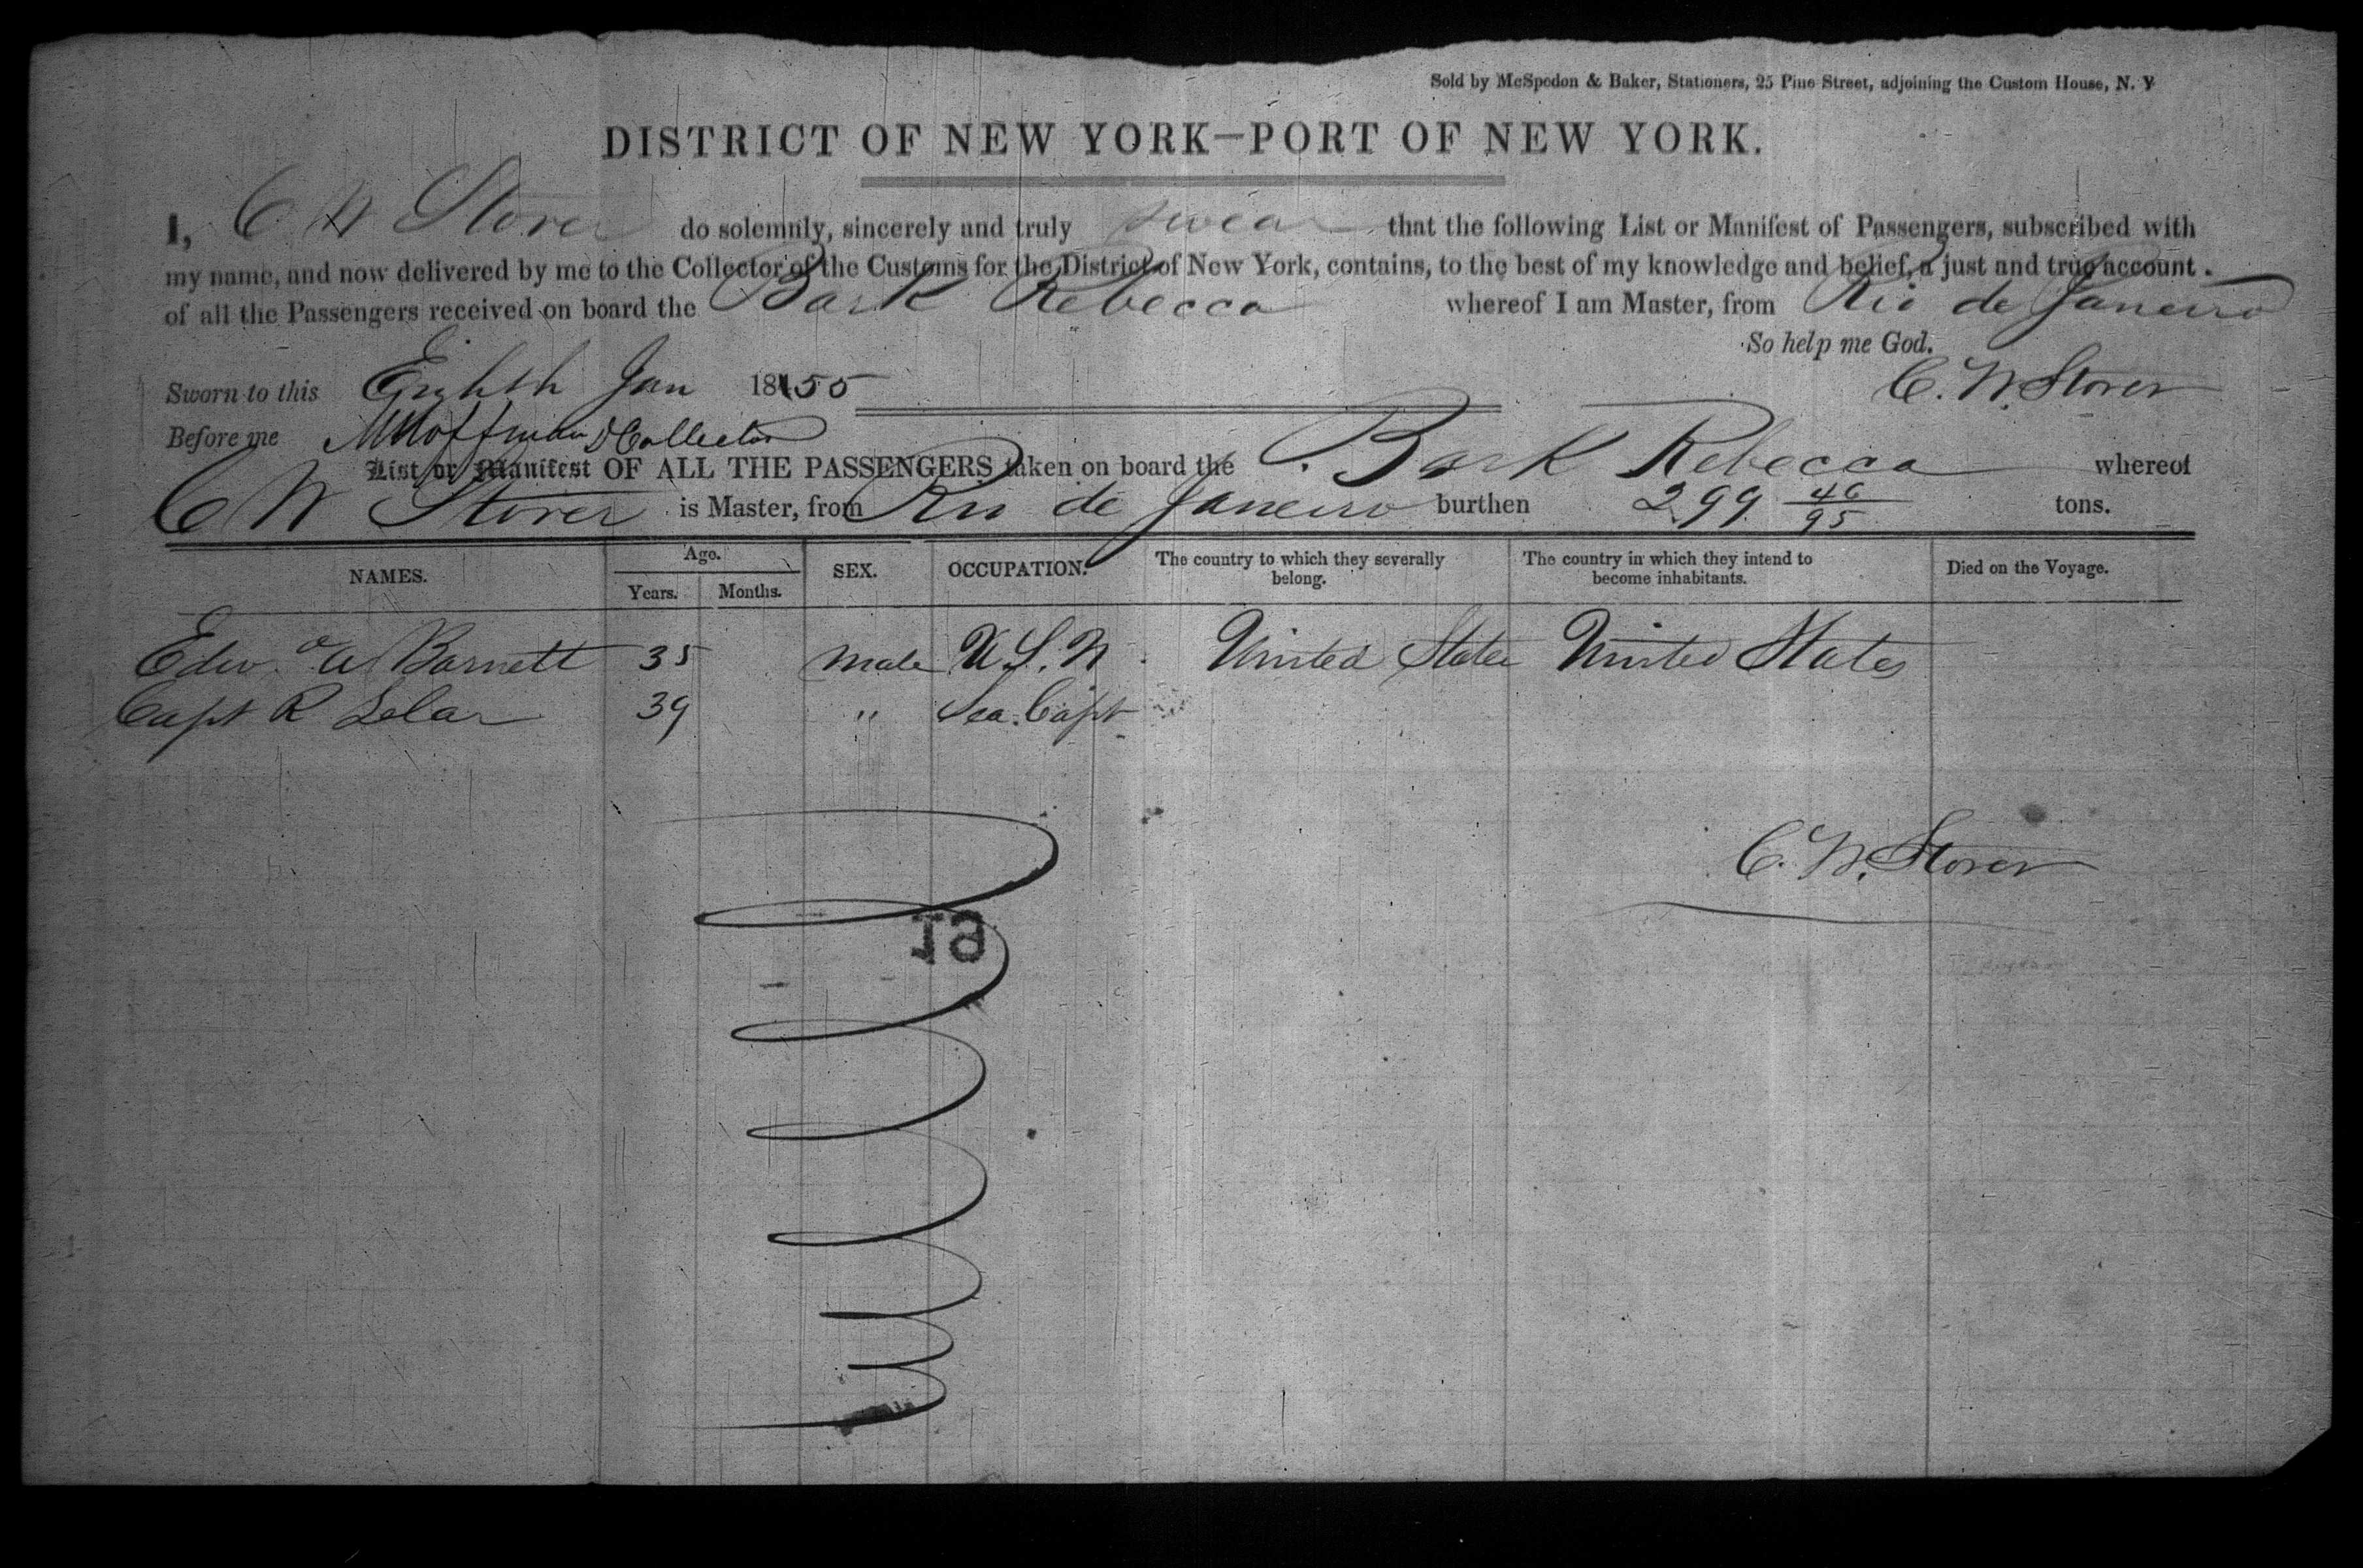 Sold by McSpedon & Baker, Stationers, 25 Pine Street, adjoining the Custom House, N. Y
DISTRICT OF NEW YORK—PORT OF NEW YORK.
I, C W Storer do solemnly, sincerely and truly swear that the following List or Manifest of Passengers, subscribed with
my name, and now delivered by me to the Collector of the Customs for the District of New York, contains, to the best of my knowledge and belief, a just and true account
of all the Passengers received on board the Bark Rebecca whereof I am Master, from Rio de Janeiro
So help me God.
Sworn to this Eighth Jan 1855 C. W. Storer
Before me MHoffman D Collector
List or Manifest OF ALL THE PASSENGERS taken on board the Bark Rebecca whereof
C W Storer is Master, from Rio de Janeiro burthen 299 46/95 tons.
NAMES. Age. SEX. OCCUPATION. The country to which they severally belong. The country in which they intend to become inhabitants. Died on the Voyage.
Years. Months.
Edwd W Barnett 35 Male U.S.N. United States United States
Capt R 39 " Sea. Capt
C. W. Storer
19